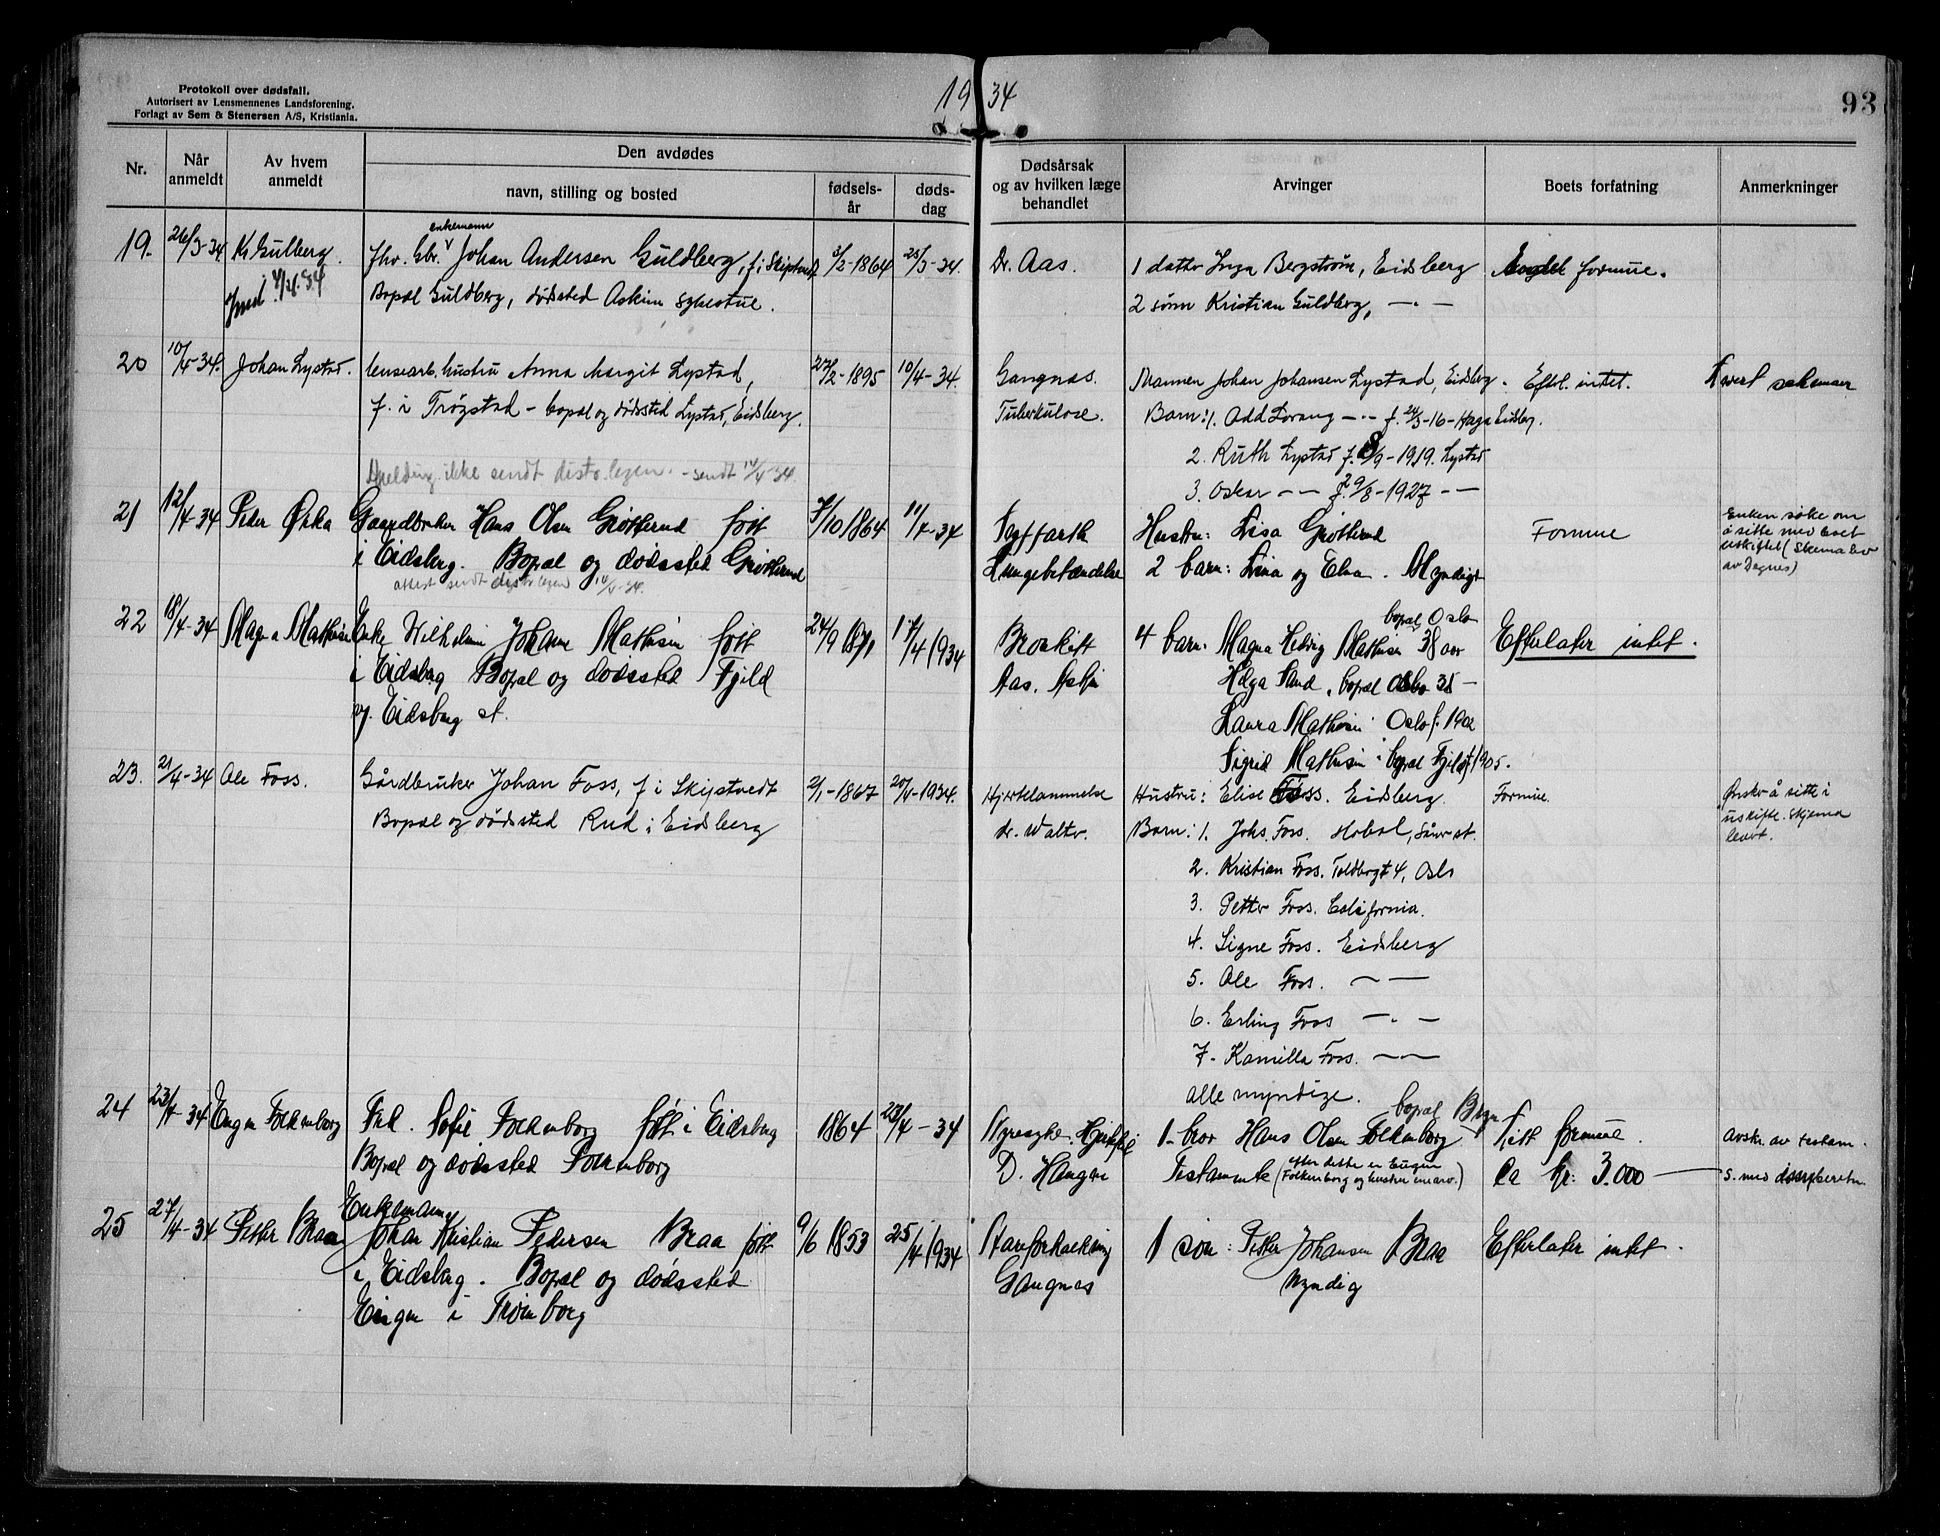 Protokoll over dødsfall.
Autorisert av Lensmennenes Landsforening.
Forlagt av Sem & Stenersen A/S, Kristiania.
1934
93
Nr. Når anmeldt Av hvem anmeldt Den avdødes navn, stilling og bosted fødsels-år døds-dag Dødsårsak og av hvilken læge behandlet Arvinger Boets forfatning Anmerkninger
enkemann
19. 26/3-34 K. Gulberg. Fhv. Gbr. Johan Andersen Guldberg, f. i Skiptvedt 3/2-1864 25/3-34. Dr. Aas. 1 datter Inga Bergstrøm, Eidsberg formue.
4/4-34 Bopæl Guldberg, dødsted Askim sykestue. 2 sønn Kristian Guldberg, — " —
20 10/4-34. Johan Lystad. hustru Anna Margit Lystad, 27/2-1895 10/4-34. Gangnæs. Mannen Johan Johansen Lystad, Eidsberg. Efterl. intet.
f. i Trøgstad - bopæl og dødsted Lystad, Eidsberg. Tuberkulose. Barn: 1. Odd Lorang — " — f. 24/3-16 - Haga Eidsberg.
2. Ruth Lystad f. 8/9-1919. Lystad
Melding ikke sendt distr.legen. - sendt 14/4 34.
3. Oskar — — f. 29/8-1927 — —
21 12/4-34 Peder Ørka Gaardbruker Hans Olsen Grøtterud født 7/10 1864 11/4-34 Hustru: Lisa Grøtterud Formue Enken søke om å sitte med boet uskiftet (Skema lev av Degnes)
i Eidsberg. Bopæl og dødssted Grøtterud Lungebetændelse 2 barn: Lina og Elna. Myndige
attest sendt distr legen 14/4-34.
bopæl Oslo
22 18/4-34 Magna Mathisen Enke Wilhelmine Johanne Mathisen født 24/9 1871 17/4 1934 Broskift 4 barn: Magna Hedvig Mathisen 38 aar Efterlater intet.
i Eidsberg Bopæl og dødssted Fjeld Aas. Askim Helga Sand, bopæl Oslo 35 —
v. Eidsberg st. Laura Mathisen Oslo f. 1902
Sigrid Mathisen bopæl Fjeld f 1905.
23. 21/4-34 Ole Foss. Gårdbruker Johan Foss, f. i Skiptvedt 2/1-1867 20/4-1934. Hjertelammelse Hustru: Elise Foss. Eidsberg. Formue. Ønsker å sitte i uskifte. Skjema levert.
Bopæl og dødsted Rud i Eidsberg dr. Walter. Barn: 1. Johs. Foss. Hobøl, Såner st.
2. Kristian Foss. Toldbergt 4, Oslo
3. Petter Foss. California.
4. Signe Foss. Eidsberg
5. Ole Foss. — —
6. Erling Foss — " —
7. Kamilla Foss. — —
alle myndige.
24 23/4-34 Eugen Folkenborg Frk. Sofie Folkenborg født i Eidsberg 1864 23/4-34 1 bror Hans Olsen Folkenborg bopæl Litt formue. Avskr. av testam.
Bopæl og dødssted Folkenborg D. Haugen Testamente (efter dette er Eugen Folkenborg og hustru enearv.) ca kr: 3.000 — s. med dødsfberetn.
Enkemann
25 27/4-34 Petter Braa Johan Kristian Pedersen Braa født 9/6 1853 25/4 1934 Aareforkalkning 1 søn: Petter Johansen Braa Efterlater intet.
i Eidsberg. Bopæl og dødssted Gangnæs Myndig
Engen i Trømborg